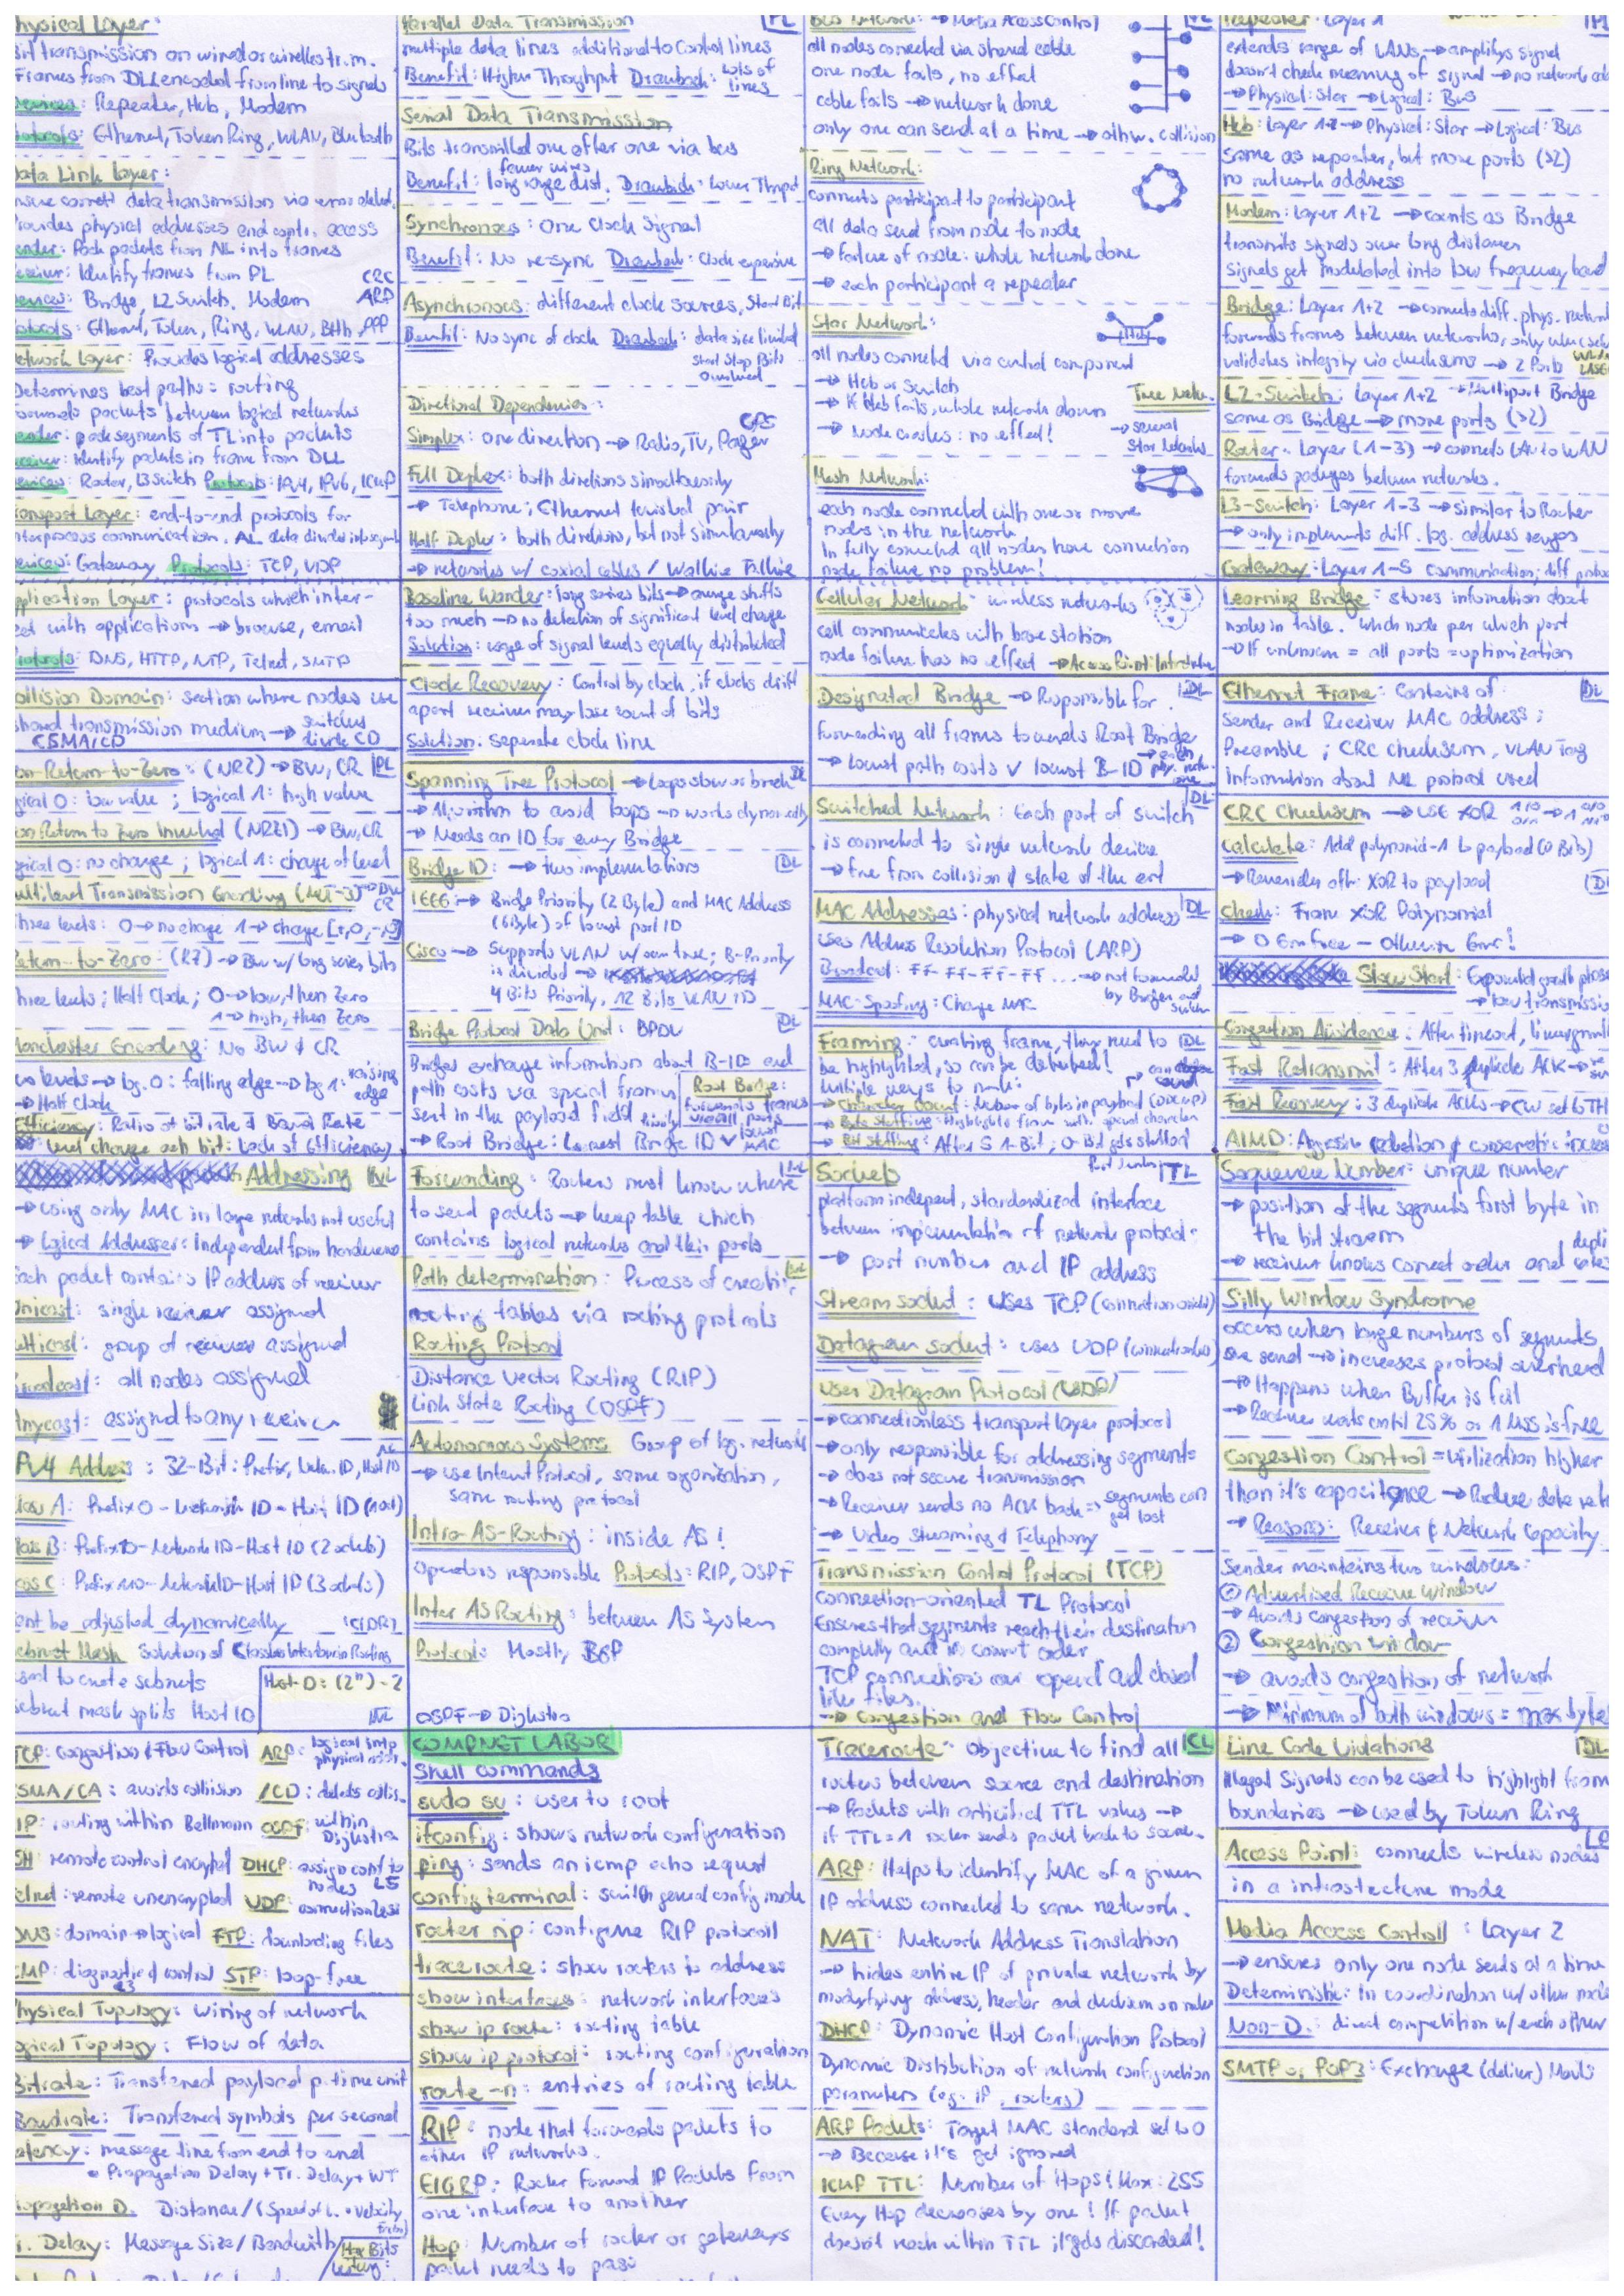 Physical Layer:
Bit transmission on wired or wireless tr. m.
Frames from DLL encoded from line to signals
Devices: Repeater, Hub, Modem
Protocols: Ethernet, Token Ring, WLAN, Bluetooth
Data Link Layer:
ensure correct data transmission via error detect.
Provides physical addresses and contr. access
Sender: Pack packets from NL into frames
Receiver: Identify frames from PL
CRC
Devices: Bridge, L2 Switch, Modem
ARP
Protocols: Ethernet, Token, Ring, WLAN, Bth, PPP
Network Layer: Provides logical addresses
Determines best paths = routing
Forwards packets between logical networks
Sender: pack segments of TL into packets
Receiver: Identify packets in frame from DLL
Devices: Router, L3 Switch Protocols: IPv4, IPv6, ICMP
Transport Layer: end-to-end protocols for
interprocess communication. AL data divided into segments
Devices: Gateway Protocols: TCP, UDP
Application Layer: protocols which inter-
act with applications → browse, email
Protocols: DNS, HTTP, NTP, Telnet, SMTP
Collision Domain: section where nodes use
shared transmission medium → switches divide CD
CSMA/CD
Non-Return-to-Zero: (NRZ) → BW, CR PL
logical 0: low value; logical 1: high value
Non Return to Zero Inverted (NRZI) → BW, CR
logical 0: no change; logical 1: change of level
Multilevel Transmission Encoding (MLT-3) → BW CR
Three levels: 0 → no change 1 → change [+,0,-,0]
Return-to-Zero: (RZ) → BW w/ long series bits
Three levels; Half Clock; 0 → low, then Zero
1 → high, then Zero
Manchester Encoding: No BW & CR
two levels → log. 0: falling edge → log 1: raising edge
→ Half Clock
Efficiency: Ratio of bit rate & Baud Rate
level change each bit: Lack of Efficiency
Addressing NL
→ using only MAC in large networks not useful
→ Logical Addresses: Independent from hardware
Each packet contains IP address of receiver
Unicast: single receiver assigned
Multicast: group of receivers assigned
Broadcast: all nodes assigned
Anycast: assigned to any receiver
NL
IPv4 Address: 32-Bit: Prefix, Netw. ID, Host ID
Class A: Prefix 0 - Network ID - Host ID (1 oct)
Class B: Prefix 10 - Network ID - Host ID (2 octets)
Class C: Prefix 110 - Network ID - Host ID (3 octets)
can't be adjusted dynamically (CIDR)
Subnet Mask Solution of Classless Interdomain Routing
used to create subnets
Host-D: (2ⁿ) - 2
subnet mask splits Host ID
NL
TCP: Congestion & Flow Control ARP: logical into physical addr.
CSMA/CA: avoids collision /CD: detects collis.
RIP: routing within Bellmann OSPF: within Dijkstra
SSH: remote control encrypted DHCP: assign conf to nodes L5
Telnet: remote unencrypted UDP: connectionless
DNS: domain → logical FTP: downloading files
ICMP: diagnostic & control STP: loop-free
L3
Physical Topology: wiring of network
Logical Topology: Flow of data
Bitrate: Transferred payload p. time unit
Baudrate: Transferred symbols per second
Latency: message time from end to end
• Propagation Delay + Tr. Delay + WT
Propagation D. Distance/(Speed of L. * Velocity factor)
Tr. Delay: Message Size/Bandwidth
Parallel Data Transmission PL
multiple data lines additional to Control lines
Benefit: Higher Throughput Drawback: Lots of lines
Serial Data Transmission
Bits transmitted one after one via bus
fewer wires
Benefit: long range dist. Drawback: Lower Thrput
Synchronous: One Clock Signal
Benefit: No re-sync Drawback: Clock expensive
Asynchronous: different clock sources, Start Bit
Benefit: No sync of clock Drawback: data size limited
Start Stop Bits
Overhead
Directional Dependencies:
GPS
Simplex: one direction → Radio, TV, Pager
Full Duplex: both directions simultaneously
→ Telephone; Ethernet twisted pair
Half Duplex: both directions, but not simultaneously
→ networks w/ coxial cables / Walkie Talkie
Baseline Wander: long series bits → average shifts
too much → no detection of significant level change
Solution: usage of signal levels equally distributed
Clock Recovery: Control by clock, if clocks drift
apart receiver may lose count of bits
Solution: seperate clock line
Spanning Tree Protocol → Loops slow or break DL
→ Algorithm to avoid loops → works dynamically
→ Needs an ID for every Bridge
Bridge ID: → two implementations DL
IEEE → Bridge Priority (2 Byte) and MAC Address
(6 Byte) of lowest port ID
Cisco → Supports VLAN w/ own tree; B-Priority
is divided →
4 Bits Priority, 12 Bits VLAN ID
Bridge Protocol Data Unit: BPDU DL
Bridges exchange information about B-IDs and
path costs via special frames
sent in the payload field
Root Bridge:
forwards frames
via all ports
→ Root Bridge: Lowest Bridge ID ∨ lowest MAC
Forwarding: Routers must know where NL
to send packets → keep table which
contains logical networks and their ports
Path determination: Process of creating NL
routing tables via routing protocols
Routing Protocol
Distance Vector Routing (RIP)
Link State Routing (OSPF)
Autonomous Systems Group of log. networks
→ use Internet Protocol, same organization,
same routing protocol
Intra-AS-Routing: inside AS!
Operators responsible Protocols: RIP, OSPF
Inter AS Routing: between AS System
Protocols: Mostly BGP
OSPF → Dijkstra
COMPNET LABOR
Shell commands
sudo su: user to root
ifconfig: shows network configuration
ping: sends an icmp echo request
config terminal: switch general config mode
router rip: configure RIP protocoll
traceroute: show routers to address
show interfaces: network interfaces
show ip route: routing table
show ip protocol: routing configuration
route -n: entries of routing table
RIP: node that forwards packets to
other IP networks.
EIGRP: Router forward IP Packets from
one interface to another
Hop: Number of router or gateways
packet needs to pass
Bus Network: → Media Access Control PL
all nodes connected via shared cable
one node fails, no effect
cable fails → network done
only one can send at a time → othw. collision
Ring Network:
connects participant to participant
all data send from node to node
→ failure of node: whole network done
→ each participant a repeater
Star Network:
Hub
all nodes connected via central component
→ Hub or Switch
→ If Hub fails, whole network down
→ Node crashes: no effect!
Tree Netw.
→ several
Star Networks
Mesh Network:
each node connected with one or more
nodes in the network
In fully connected all nodes have connection
node failure no problem!
Cellular Network: wireless networks
cell communicates with base station
node failure has no effect → Access Point: Infrastruktur
Designated Bridge → Responsible for DL
forwarding all frames towards Root Bridge
→ Lowest path costs ∨ lowest B-ID
Switched Network: Each port of switch DL
is connected to single network device
→ free from collision & state of the art
MAC Addresses: physical network address DL
uses Address Resolution Protocol (ARP)
Broadcast: FF-FF-FF-FF ... → not forwarded
by Bridges and switches
MAC-Spoofing: Change MAC
Framing: creating frame, they need to DL
be highlighted, so can be detected!
Multiple ways to mark:
→ Character Count: Number of byte in payload
→ Byte Stuffing: Highlights frame with special character
→ Bit Stuffing: After 5 1-Bit, 0-Bit gets stuffed
Sockets Port Number TL
platform indepent, standardized interface
between implementation of network protocol:
→ port number and IP address
Stream socket: Uses TCP (connection oriented)
Datagram socket: uses UDP (connectionless)
User Datagram Protocol (UDP)
→ connectionless transport layer protocol
→ only responsible for addressing segments
→ does not secure transmission
→ Receiver sends no ACK back → segments can get lost
→ Video Streaming & Telephony
Transmission Control Protocol (TCP)
connection-oriented TL Protocol
Ensures that segments reach their destination
completly and in correct order
TCP connections are opened and closed
like files.
→ Congestion and Flow Control
Traceroute: objective to find all CL
routers between source and destination
→ Packets with artificial TTL values →
if TTL=1 router sends packet back to source.
ARP: Helps to identify MAC of a given
IP address connected to same network.
NAT: Network Address Translation
→ hides entire IP of private network by
modyfying address, header and
DHCP: Dynamic Host Configuration Protocol
Dynamic Distribution of network configuration
parameters (eg. IP, routers)
ARP Packets: Target MAC standard set to 0
→ Because it's get ignored
ICMP TTL: Number of Hops! Max: 255
Every Hop decreases by one! If packet
doesn't reach within TTL it gets discarded!
Repeater: Layer 1 PL
extends range of LANs → amplifys signal
doesn't check meaning of signal → no network add
→ Physical: Star → Logical: Bus
Hub: Layer 1 → Physical: Star → Logical: Bus
same as repeater, but more ports (>2)
no network address
Modem: Layer 1+2 → counts as Bridge
transmits signals over long distances
signals get modulated into low frequency band
Bridge: Layer 1+2 → connects diff. phys. network
forwards frames between networks, only
validates integrity via checksums → 2 Ports
L2-Switch: Layer 1+2 → Multiport Bridge
same as Bridge → more ports (>2)
Router: Layer (1-3) → connects LAN to WAN
forwards packages between networks.
L3-Switch: Layer 1-3 → similar to Router
→ only implements diff. log. address ranges
Gateway: Layer 1-5 communication; diff protoc
Learning Bridge: stores information about
nodes in table. which node per which port
→ If unknown = all ports = optimization
Ethernet Frame: Contains of DL
Sender and Receiver MAC address;
Preamble; CRC checksum, VLAN Tag
Information about NL protocol used
CRC Checksum → USE XOR
Calculate: Add polynomial-1 to payload (0 Bits)
→ Remainder after XOR to payload DL
Check: Frame XOR Polynomial
→ 0 Error free - Otherwise Error!
Slow Start: Exponential growth phase
→ low transmission
Congestion Avoidance: After timeout, linear growth
Fast Retransmit: After 3 duplicate ACK →
Fast Recovery: 3 duplicate ACKs → CW set to TH
AIMD: Aggressive reduction & conservative increase
Sequence Number: unique number
→ position of the segments first byte in
the bit stream
→ receiver knows correct order and
Silly Window Syndrome
occurs when large numbers of segments
are send → increases protocol overhead
→ Happens when Buffer is full
→ Receiver waits until 25% or 1 MSS is free
Congestion Control = utilization higher
than it's capacity → Reduce data rate
→ Reasons: Receiver & Network Capacity
Sender maintains two windows:
① Advertised Receive Window
→ Avoids congestion of receiver
② Congestion window
→ avoids congestion of network
→ Minimum of both windows = max bytes
Line Code Violations DL
Illegal Signals can be used to highlight frame
boundaries → used by Token Ring
Access Point: connects wireless nodes
in a infrastructure mode
Media Access Controll: Layer 2
→ ensures only one node sends at a time
Deterministic: In coordination w/ other nodes
Non-D.: direct competition w/ each other
SMTP or POP3: Exchange (deliver) Mails